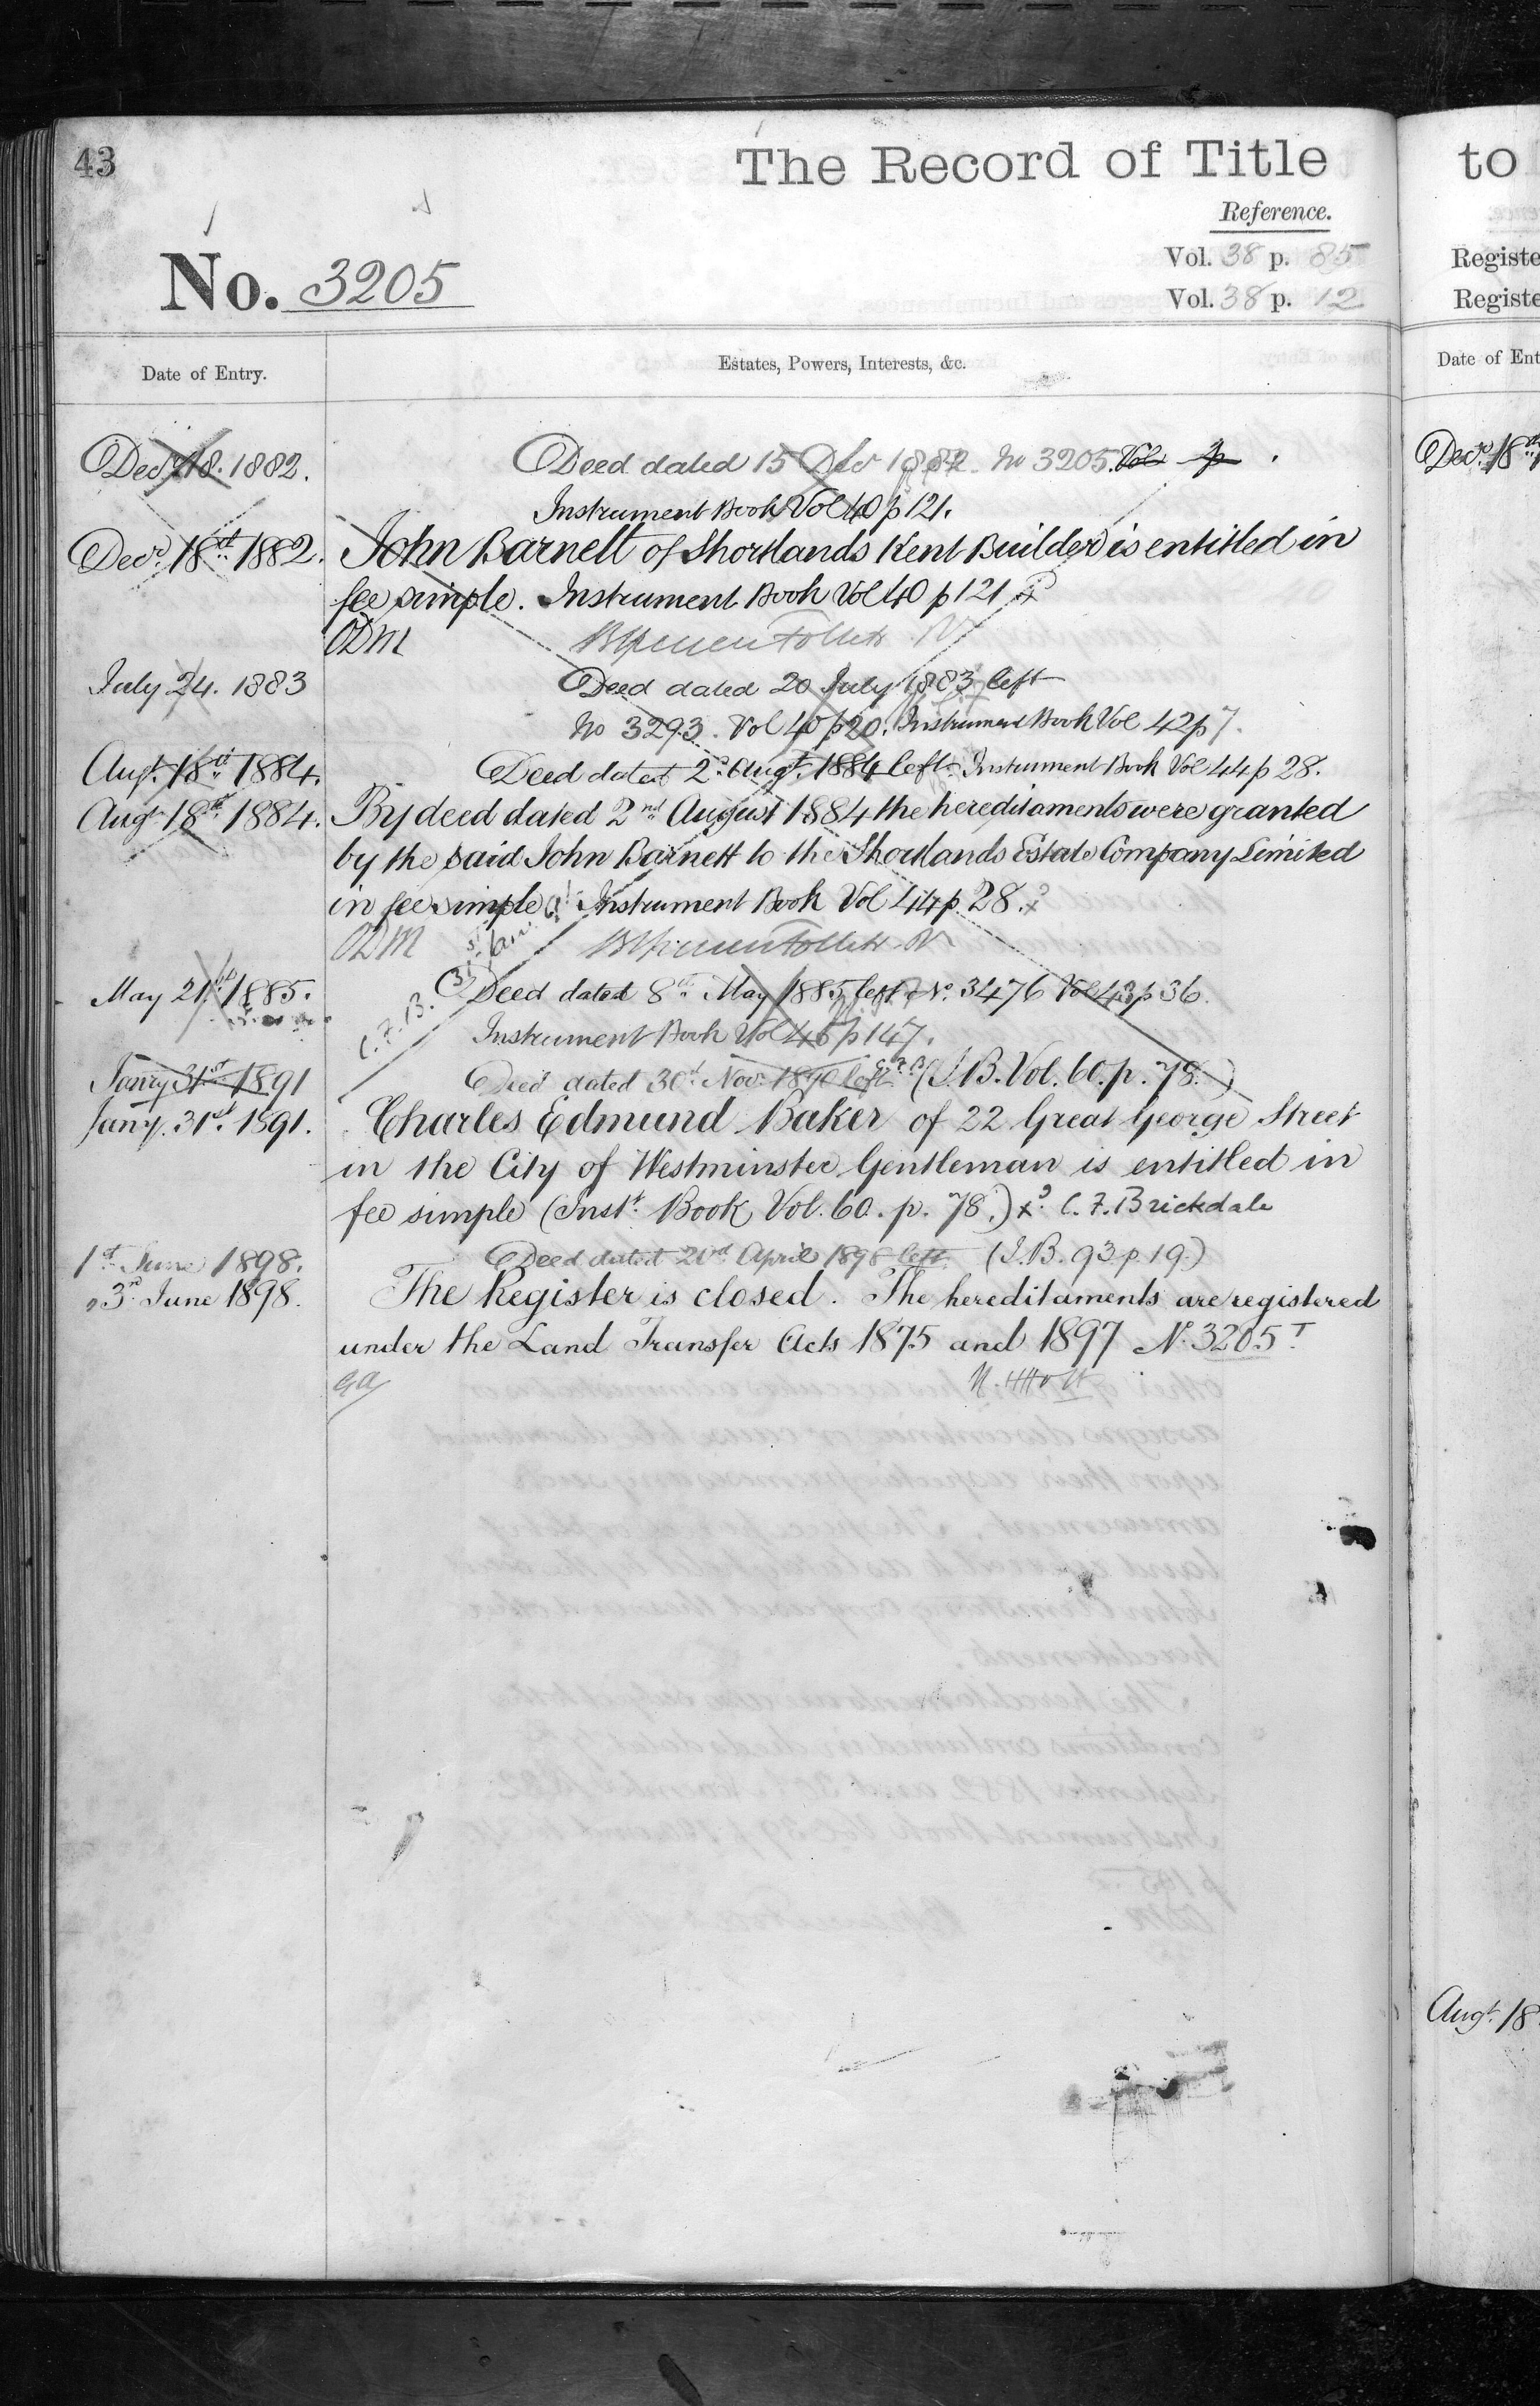 43
The Record of Title
to
Reference.
No. 3205
Vol. 38 p. 85
Vol. 38 p. 12
Registe
Registe
Date of Entry.
Estates, Powers, Interests, &c.
Date of Ent
Decr. 18. 1882. Deed dated 15 Decr 1882. No 3205. Vol p
Instrument Book Vol 40 p 121.
Decr. 18th 1882. John Barnett of Shortlands Kent Builder is entitled in
fee simple. Instrument Book Vol 40 p 121
ODM
July 24. 1883 Deed dated 20 July 1883 left
No 3293. Vol 40 p 20. Instrument Book Vol 42 p 7.
Augt. 18th 1884. Deed dated 2d. Augt. 1884 left Instrument Book Vol 44 p 28.
Augt 18th 1884. By deed dated 2nd August 1884 the hereditaments were granted
by the said John Barnett to the Shortlands Estate Company Limited
in fee simple. Instrument Book Vol 44 p. 28.
ODM
C.F.B. 31st Jan. 91
May 21st 1885. Deed dated 8th May 1885 left No. 3476 Vol 43 p 36.
Instrument Book Vol 45 p 147.
Janry 31st 1891 Deed dated 30th Novr. 1890 left C.F.B. (I.B. Vol. 60. p. 78.)
Jany. 31st. 1891. Charles Edmund Baker of 22 Great George Street
in the City of Westminster Gentleman is entitled in
fee simple (Inst. Book Vol. 60. p. 78.) C. F. Brickdale
1st June 1898. Deed dated April 1898 left (I.B. 93 p. 19.)
3rd June 1898. The Register is closed. The hereditaments are registered
under the Land Transfer Acts 1875 and 1897 No. 3205 T
Decr. 18th
Augt. 18